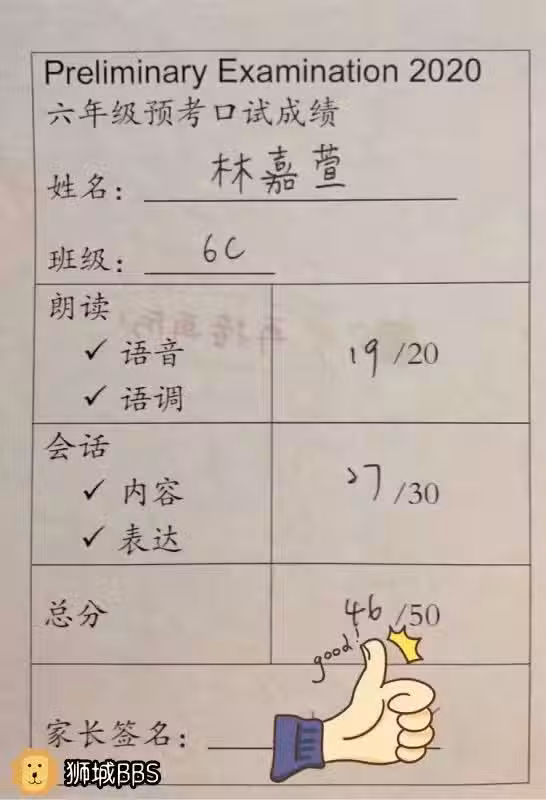 Preliminary Examination 2020
六年级预考口试成绩
姓名：林嘉萱
班级：6C
朗读
✓ 语音
✓ 语调
19/20
会话
✓ 内容
✓ 表达
27/30
总分
46/50
good!
家长签名：
狮城BBS